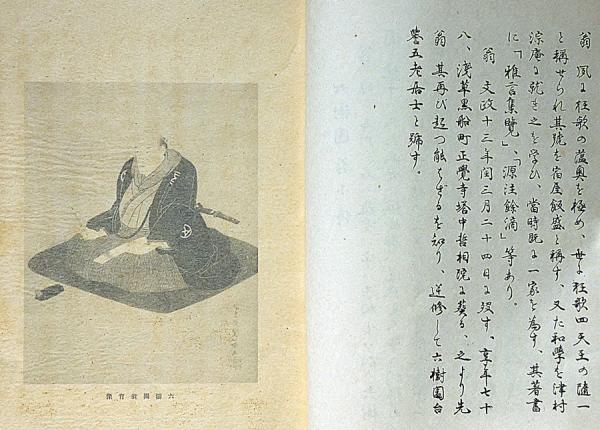 翁　夙に狂歌の蘊奥を極め、世に狂歌四天王の随一
と稱せられ其號を宿屋飯盛と稱す、又た和學を津村
淙庵に就き之を学び、當時既に一家を為す、其著書
に「雅言集覽」、「源注餘滴」等あり。
翁　文政十三年閏三月二十四日に歿す、享年七十
八、淺草黒船町正覺寺塔中哲相院に葬る、之より先
翁　其再び起つ能はざるを知り、逆修して六樹園台
譽五老居士と號す。
六樹園翁肖像